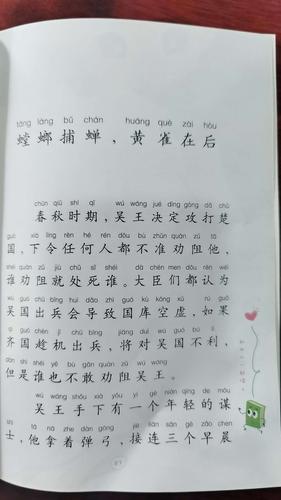 táng láng bǔ chán huáng què zài hòu
螳螂捕蝉，黄雀在后
chūn qiū shí qī wú wáng jué dìng gōng dǎ chǔ
春秋时期，吴王决定攻打楚
guó xià lìng rèn hé rén dōu bù zhǔn quàn zǔ tā
国，下令任何人都不准劝阻他，
shéi quàn zǔ jiù chǔ sǐ shéi dà chén men dōu rèn wéi
谁劝阻就处死谁。大臣们都认为
wú guó chū bīng huì dǎo zhì guó kù kōng xū rú guǒ
吴国出兵会导致国库空虚，如果
qí guó chèn jī chū bīng jiāng duì wú guó bú lì
齐国趁机出兵，将对吴国不利，
dàn shì shéi yě bù gǎn quàn zǔ wú wáng
但是谁也不敢劝阻吴王。
wú wáng shǒu xià yǒu yí gè nián qīng de móu
吴王手下有一个年轻的谋
shì tā ná zhe dàn gōng jiē lián sān gè zǎo chén
士，他拿着弹弓，接连三个早晨